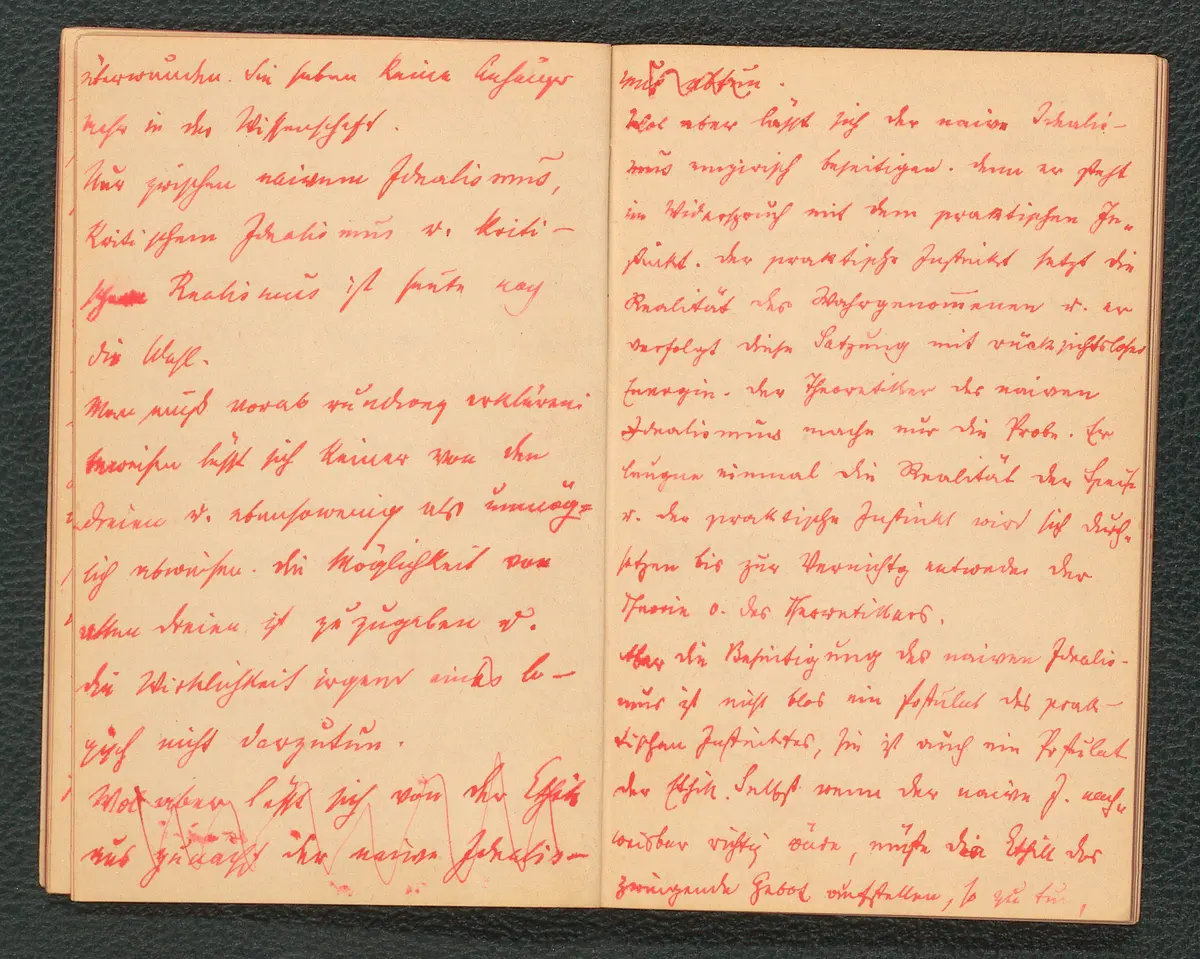 überwunden. Sie haben keine Anhänger
mehr in der Wissenschaft.
Nur zwischen naivem Idealismus,
kritischem Idealismus u. kriti-
schem Realismus ist heute noch
die Wahl.
Man muß vorab rundweg erklären:
beweisen läßt sich keiner von den
dreien u. ebensowenig als unmög-
lich abweisen. Die Möglichkeit von
allen dreien ist zuzugeben u.
die Wirklichkeit irgend eines lo-
gisch nicht darzutun.
Wol aber läßt sich von der Ethik
aus zunächst der naive Idealis-
mus abtun.
Wol aber lässt sich der naive Idealis-
mus empirisch beseitigen. Denn er steht
im Widerspruch mit dem praktischen In-
stinkt. Der praktische Instinkt setzt die
Realität des Wahrgenom̅enen u. er
verfolgt diese Satzung mit rücksichtsloser
Energie. Der Theoretiker des naiven
Idealismus mache nur die Probe. Er
leugne einmal die Realität der Speise
u. der praktische Instinkt wird sich durch-
setzen bis zur Vernichtg entweder der
Theorie o. des Theoretikers.
Aber die Beseitigung des naiven Idealis-
mus ist nicht blos ein Postulat des prak-
tischen Instinktes, sie ist auch ein Postulat
der Ethik. Selbst wenn der naive I. nach-
weisbar richtig wäre, müßte die Ethik das
zwingende Gebot aufstellen, so zu tun,